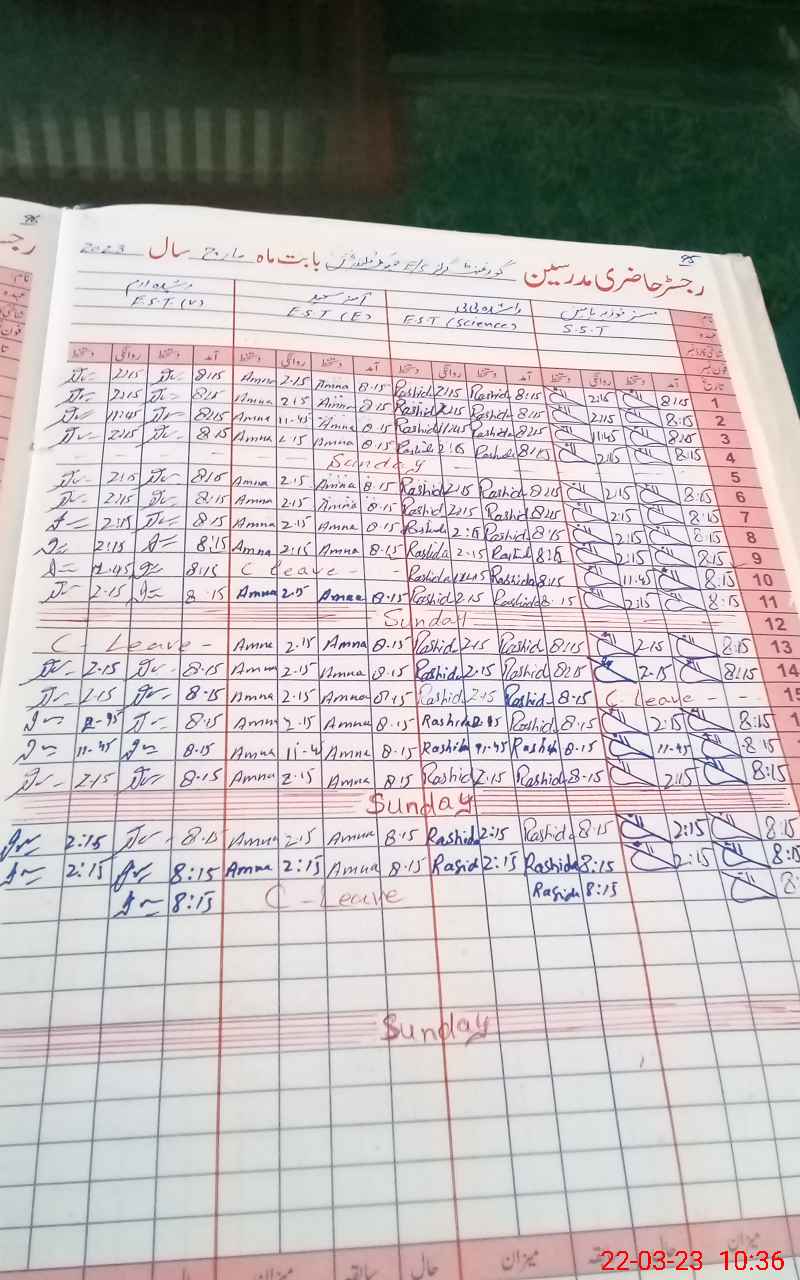 95
رجسٹر حاضری مدرسین گورنمنٹ گرلز E/S بابت ماہ مارچ سال 2023
نام
عہدہ S.S.T E.S.T (Science) E.S.T (E) E.S.T (U)
تاریخ آمد دستخط روانگی دستخط آمد دستخط روانگی دستخط آمد دستخط روانگی دستخط آمد دستخط روانگی دستخط
2:15 8:15 Amna 2.15 Amna 8.15 Rashid 2:15 Rashid 8:15 2:15 8:15 1
2:15 8:15 Amna 2.15 Amna 8.15 Rashid 2:15 Rashida 8:15 2:15 8:15 2
11:45 8:15 Amna 11.45 Amna 8.15 Rashid 11:45 Rashida 8:15 11:45 8:15 3
2:15 8:15 Amna 2.15 Amna 8.15 Rashid 2:15 Rashida 8:15 2:15 8:15 4
Sunday 5
2:15 8:15 Amna 2.15 Amna 8.15 Rashid 2:15 Rashid 8:15 2:15 8:15 6
2:15 8:15 Amna 2.15 Amna 8.15 Rashid 2:15 Rashid 8:15 2:15 8:15 7
2:15 8:15 Amna 2.15 Amna 8.15 Rashida 2:15 Rashid 8:15 2:15 8:15 8
2:15 8:15 Amna 2:15 Amna 8.15 Rashida 2.15 Rashid 8:15 2:15 8:15 9
8:15 C leave - - Rashida 11:45 Rashida 8:15 11.45 8:15 10
2.15 8.15 Amna 2.15 Amna 8.15 Rashid 2.15 Rashida 8.15 2:15 8:15 11
Sunday 12
C - Leave - Amna 2.15 Amna 8.15 Rashid 2.15 Rashid 8:15 2.15 8:15 13
2.15 8.15 Amna 2.15 Amna 8.15 Rashida 2.15 Rashida 8:15 2.15 8:15 14
2.15 8.15 Amna 2.15 Amna 8.15 Rashid 2.15 Rashid 8.15 C Leave - - 15
2.45 8.15 Amna 2.15 Amna 8.15 Rashida 2.45 Rashid 8.15 2:15 8:15
11.45 8.15 Amna 11.4 Amna 8.15 Rashida 11.45 Rashid 8.15 11.45 8:15
2.15 8.15 Amna 2.15 Amna 8.15 Rashid 2.15 Rashid 8.15 2:15 8:15
Sunday
2:15 8.15 Amna 2.15 Amna 8.15 Rashida 2:15 Rashida 8:15 2:15 8:15
2:15 8:15 Amna 2:15 Amna 8.15 Rasid 2:15 Rashida 8:15 2:15 8:15
8:15 C - Leave Rasida 8:15 8:
Sunday
میزان حال میزان سابقہ حال میزان
22-03-23 10:36